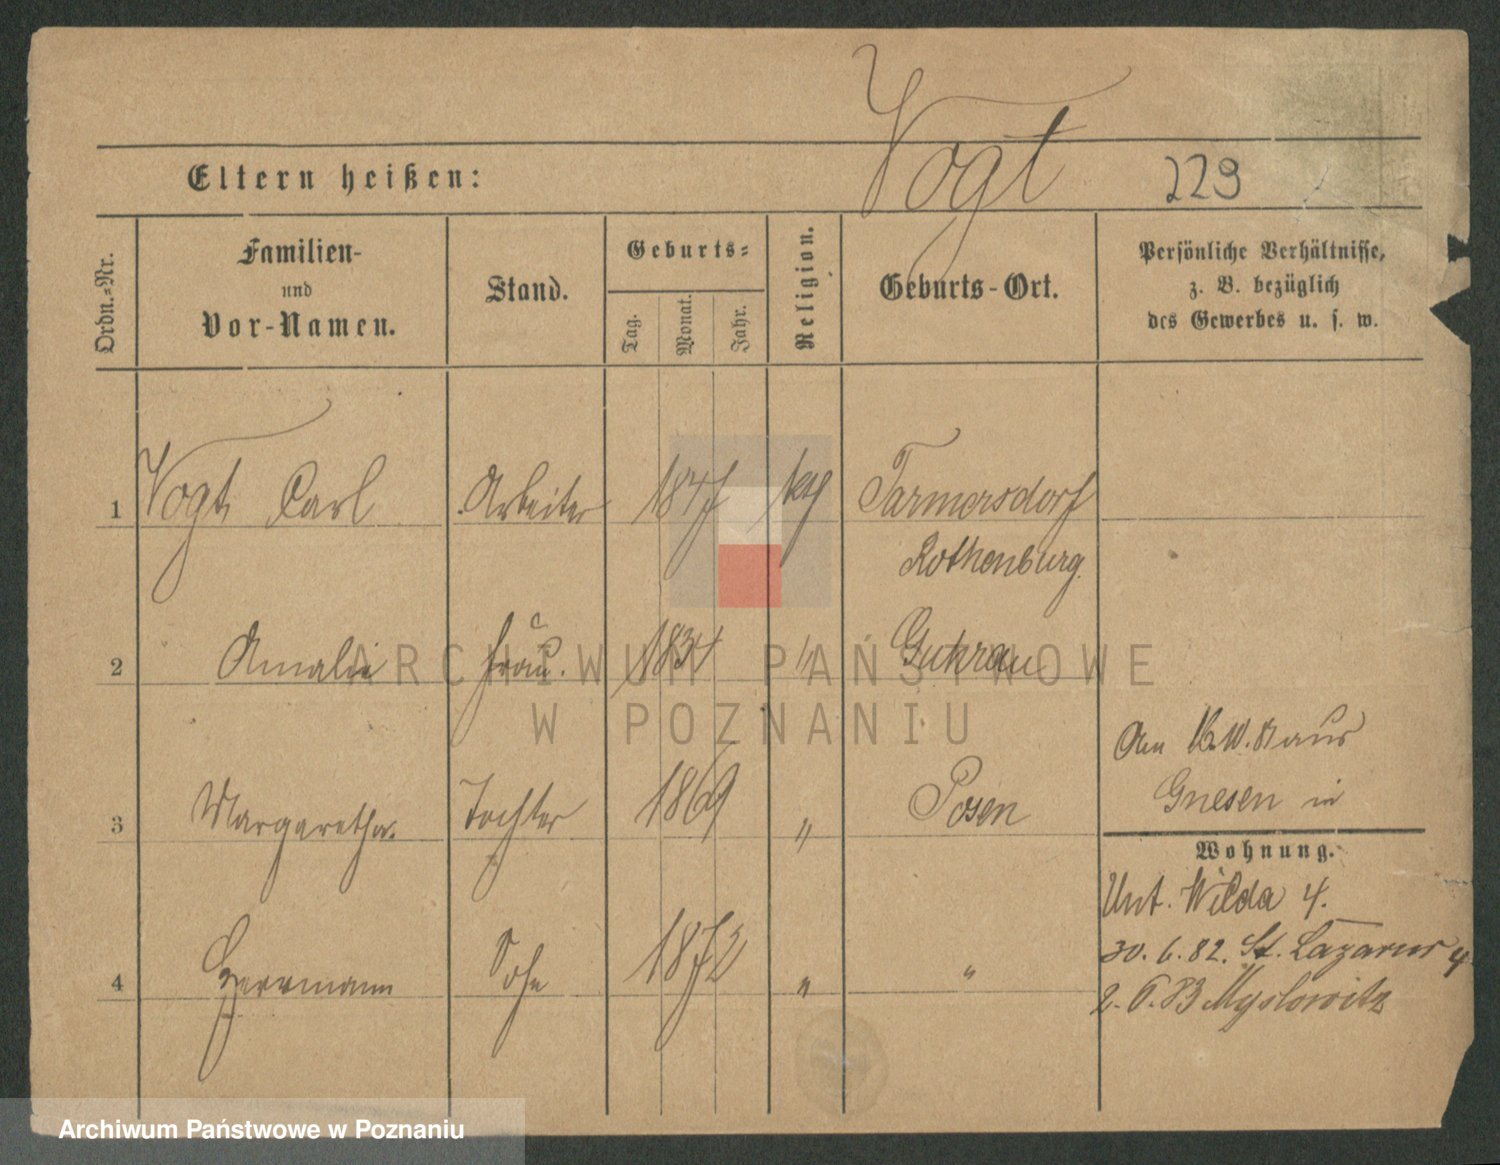 Vogt
Eltern heißen:
229
Ordn.-Nr.
Familien-
und
Vor-Namen.
Stand.
Geburts-
Tag.
Monat.
Jahr.
Religion.
Geburts-Ort.
Persönliche Verhältnisse,
z. B. bezüglich
des Gewerbes u. s. w.
1 Vogt Carl Arbeiter 1847 kth Tarmersdorf
Rothenburg.
2 Amalie Frau. 1834 " Guhrau
ARCHIWUM PAŃSTWOWE
W POZNANIU
Gnesen in
3 Margaretha. Tochter 1869 " Posen
Wohnung.
Unt. Wilda 4.
30. 6. 82. St. Lazarus 4
4 Herrmann Sohn 1872 " "
2. 6. 83 Myslowitz
Archiwum Państwowe w Poznaniu